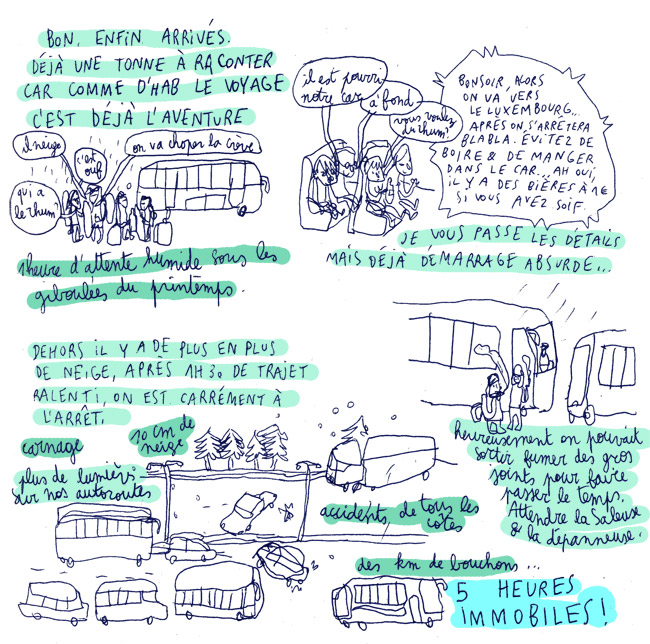 BON, ENFIN ARRIVÉS.
DÉJÀ UNE TONNE À RACONTER
CAR COMME D'HAB LE VOYAGE
C'EST DÉJÀ L'AVENTURE
il neige
c'est
ouf
on va choper la crève
qui a
le rhum?
1heure d'attente humide sous les
giboulées du printemps.
il est pourri
notre car
à fond
vous voulez
du rhum?
BONSOIR, ALORS
ON VA VERS
LE LUXEMBOURG...
APRÈS ON S'ARRÊTERA
BLABLA. ÉVITEZ DE
BOIRE & DE MANGER
DANS LE CAR... AH OUI,
IL Y A DES BIÈRES À 1€
SI VOUS AVEZ SOIF.
JE VOUS PASSE LES DÉTAILS
MAIS DÉJÀ DÉMARRAGE ABSURDE...
DEHORS IL Y A DE PLUS EN PLUS
DE NEIGE, APRÈS 1H30 DE TRAJET
RALENTI, ON EST CARRÉMENT À
L'ARRÊT.
carnage
10 cm de
neige
plus de lumière
sur nos autoroutes
accidents de tous les
côtés
heureusement on pouvait
sortir fumer des gros
joints pour faire
passer le temps.
Attendre la Saleuse
& la dépanneuse.
des km de bouchons...
5 HEURES
IMMOBILES!